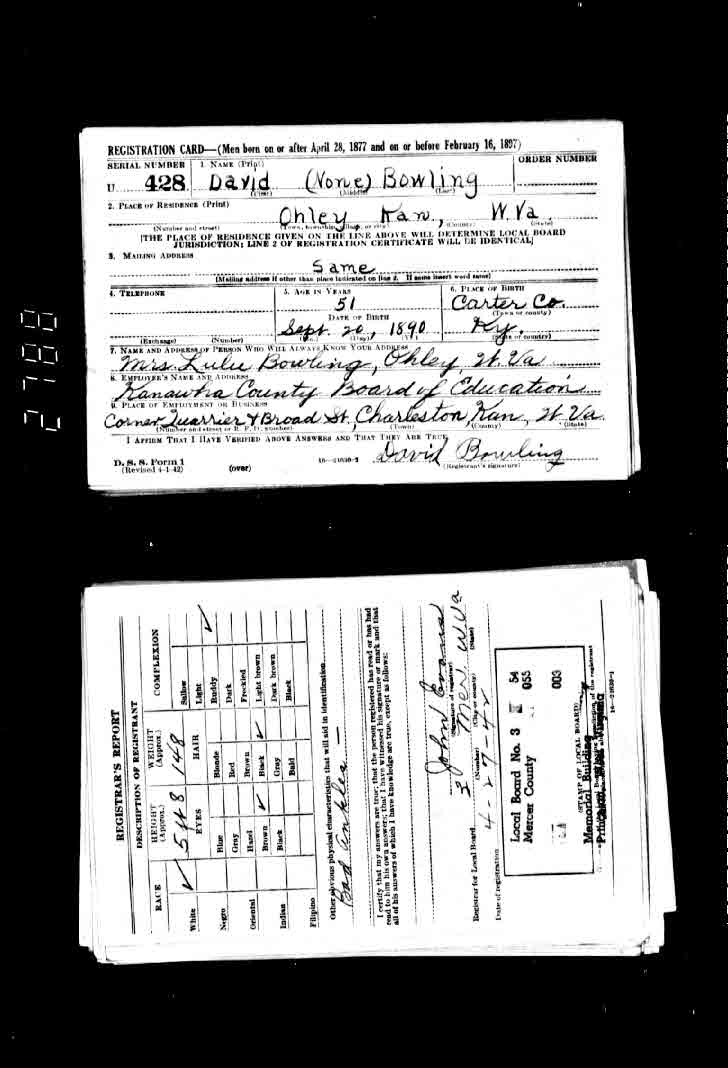 2788
REGISTRATION CARD—(Men born on or after April 28, 1877 and on or before February 16, 1897)
SERIAL NUMBER 1. NAME (Print) ORDER NUMBER
U 428 David (None) Bowling
(First) (Middle) (Last)
2. PLACE OF RESIDENCE (Print)
Ohley Kan., W. Va.
(Number and street) (Town, township, village, or city) (County) (State)
[THE PLACE OF RESIDENCE GIVEN ON THE LINE ABOVE WILL DETERMINE LOCAL BOARD
JURISDICTION; LINE 2 OF REGISTRATION CERTIFICATE WILL BE IDENTICAL]
3. MAILING ADDRESS
Same
[Mailing address if other than place indicated on line 2. If same insert word same]
4. TELEPHONE 5. AGE IN YEARS 6. PLACE OF BIRTH
51 Carter Co.
DATE OF BIRTH (Town or county)
Sept. 20, 1890 Ky.
(Exchange) (Number) (Mo.) (Day) (Yr.) (State or country)
7. NAME AND ADDRESS OF PERSON WHO WILL ALWAYS KNOW YOUR ADDRESS
Mrs. Lulu Bowling, Ohley, W. Va
8. EMPLOYER'S NAME AND ADDRESS
Kanawha County Board of Education
9. PLACE OF EMPLOYMENT OR BUSINESS
Corner Quarrier & Broad St, Charleston, Kan, W. Va.
(Number and street or R. F. D. number) (Town) (County) (State)
I AFFIRM THAT I HAVE VERIFIED ABOVE ANSWERS AND THAT THEY ARE TRUE.
David Bowling
D. S. S. Form 1
(Revised 4-1-42) (over) 16—21630-2 (Registrant's signature)
REGISTRAR'S REPORT
DESCRIPTION OF REGISTRANT
RACE HEIGHT (Approx.) WEIGHT (Approx.) COMPLEXION
White ✓ 5 ft 8 148 Sallow
EYES HAIR Light
Negro Blue Blonde Ruddy ✓
Gray Red Dark
Oriental Hazel Brown Freckled
Brown ✓ Black ✓ Light brown
Indian Black Gray Dark brown
Bald Black
Filipino
Other obvious physical characteristics that will aid in identification
Bad ankles —
I certify that my answers are true; that the person registered has read or has had
read to him his own answers; that I have witnessed his signature or mark and that
all of his answers of which I have knowledge are true, except as follows:
John Evans
(Signature of registrar)
Registrar for Local Board 3 Mer. W Va
(Number) (City or county) (State)
Date of registration 4-27-42
Local Board No. 3 54
Mercer County 055
003
(STAMP OF LOCAL BOARD)
Memorial Building
16—21630-1